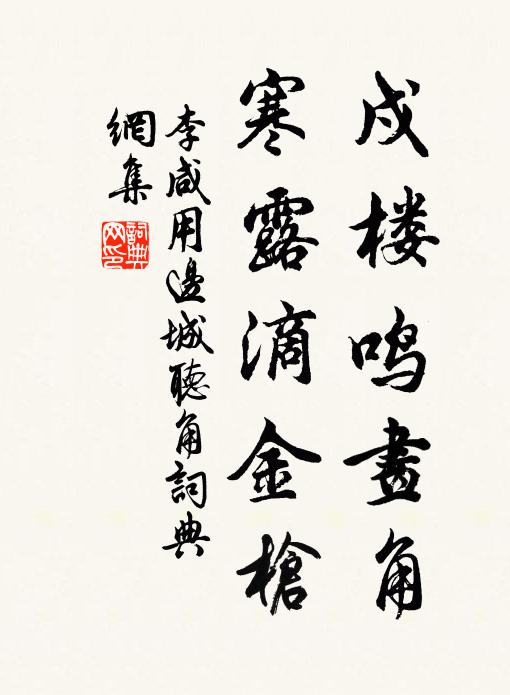 戍楼鸣畫角
寒露滴金槍
李咸用邊城聽角詞典
網集
詞典网印